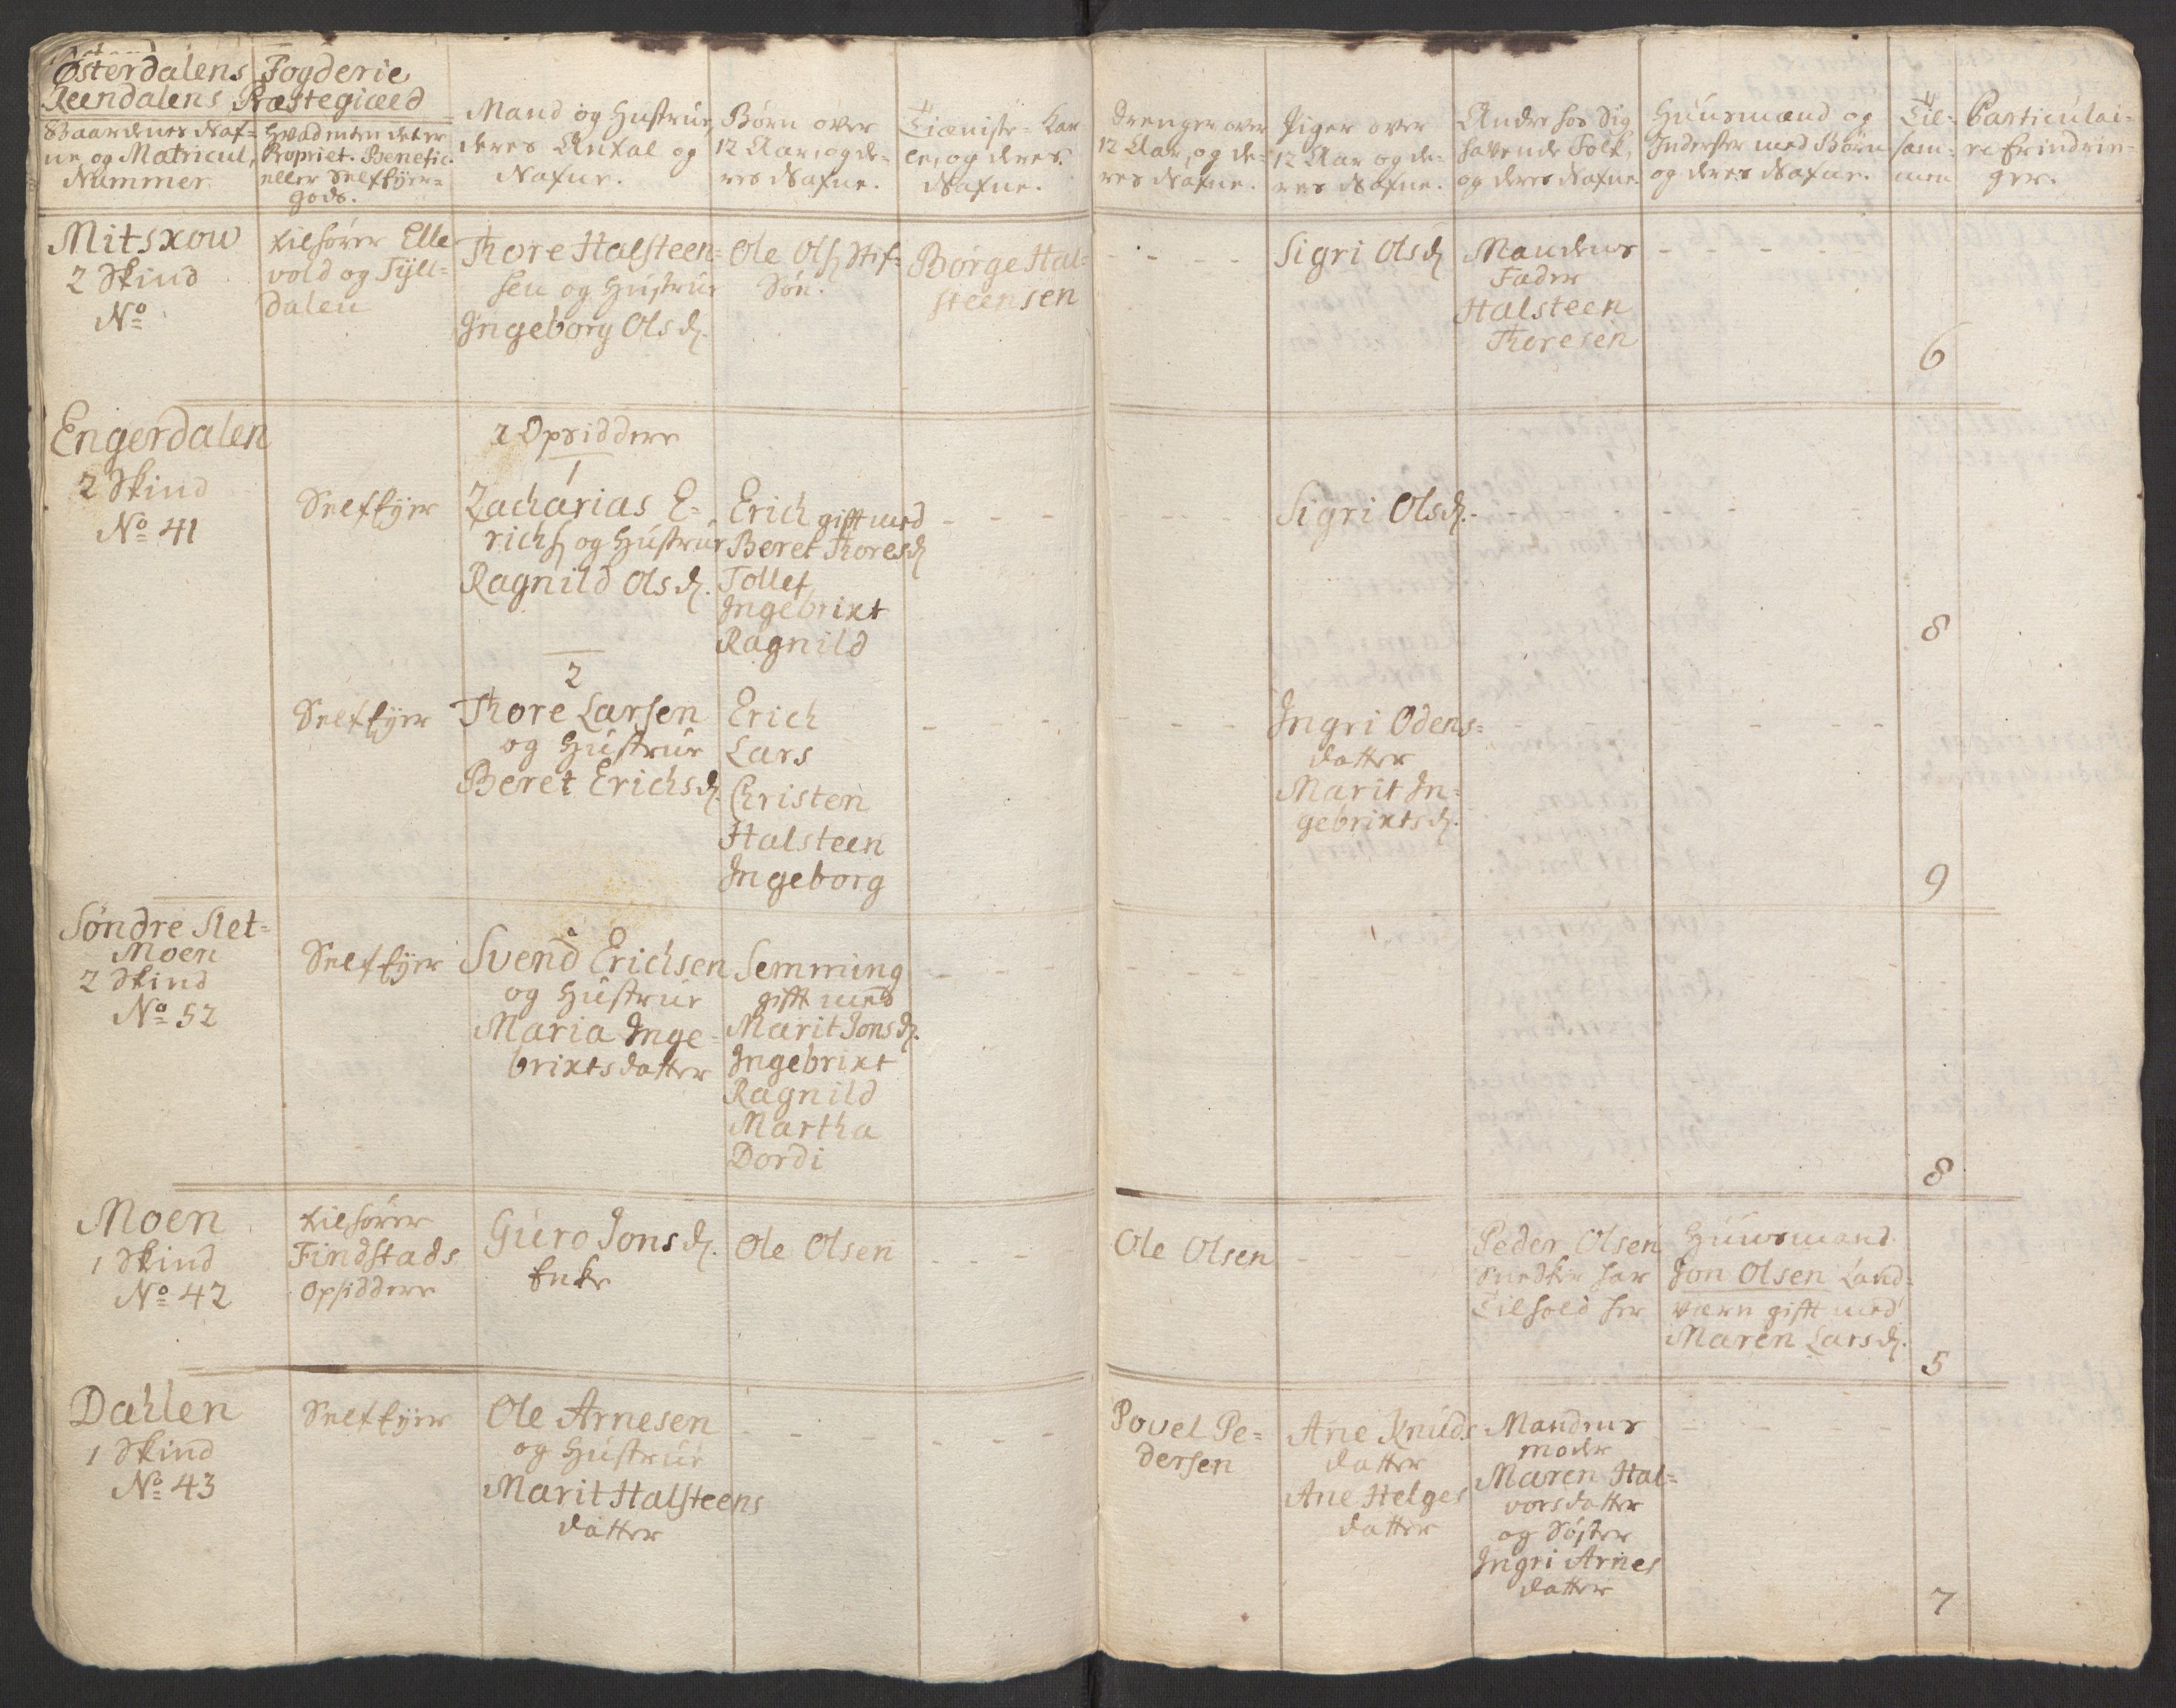 Østerdalens Fogderie
Reendalens Præstegiæld
Gaardenes Naf=
ne, og Matricul,
Nummer
Hvad enten det er
Propriet. Benefic.
eller Selfeyer=
gods.
Mand og Hustrue,
deres Antal og
Nafne.
Børn over
12 Aar, og de=
res Nafne.
Tieniste=Kar
le, og deres
Nafne.
Drenger over
12 Aar, og de=
res Nafne.
Piger over
12 Aar og de=
res Nafne.
Andre hos Sig
havende Folk,
og deres Nafne.
Huusmænd og
Inderster med Børn
og deres Nafne.
Til=
sam=
men
Particulai=
re Erindrin=
ger.
Mitskow
2 Skind
No
tilhører Elle
vold og Tyll=
dalen
Thore Halsteen=
sen og Hustrue
Ingeborg Olsd.
Ole Ols. Stif=
Søn.
Børge Hal=
steensen
Sigri Olsd
Mandens
Fader
Halsteen
Thoresen
6
Engerdalen
2 Skind
No 41
2 Opsiddere
1
Selfeyer
Zacharias E=
richs. og Hustrue
Ragnild Olsd.
Erich gift med
Beret Thoresd
Tollef
Ingebrixt
Ragnild
Sigri Olsd.
8
2
Selfeyer
Thore Larsen
og Hustrue
Beret Erichsd.
Erich
Lars
Christen
Halsteen
Ingeborg
Ingri Odens=
datter
Marit In=
gebrixtsd.
9
Søndre Slet=
Moen
2 Skind
No 52
Selfeyer
Svend Erichsen
og Hustrue
Maria Inge=
brixtsdatter
Semming
gifft med
Marit Jonsd.
Ingebrixt
Ragnild
Martha
Dordi
8
Moen
1 Skind
No 42
tilhører
Findstads
Opsiddere
Guro Jonsd.
Enke
Ole Olsen
Ole Olsen
Peder Olsen
Snedker har
Tilhold her
Huusmand
Jon Olsen Land=
værn gifft med
Maren Larsd.
5
Dahlen
1 Skind
No 43
Selfeyer
Ole Arnesen
og Hustrue
Marit Halsteens
datter
Povel Pe=
dersen
Ane Knuds
datter
Ane Helges
datter
Mandens
moder
Maren Hal=
vorsdatter
og Søster
Ingri Arnes
datter
7